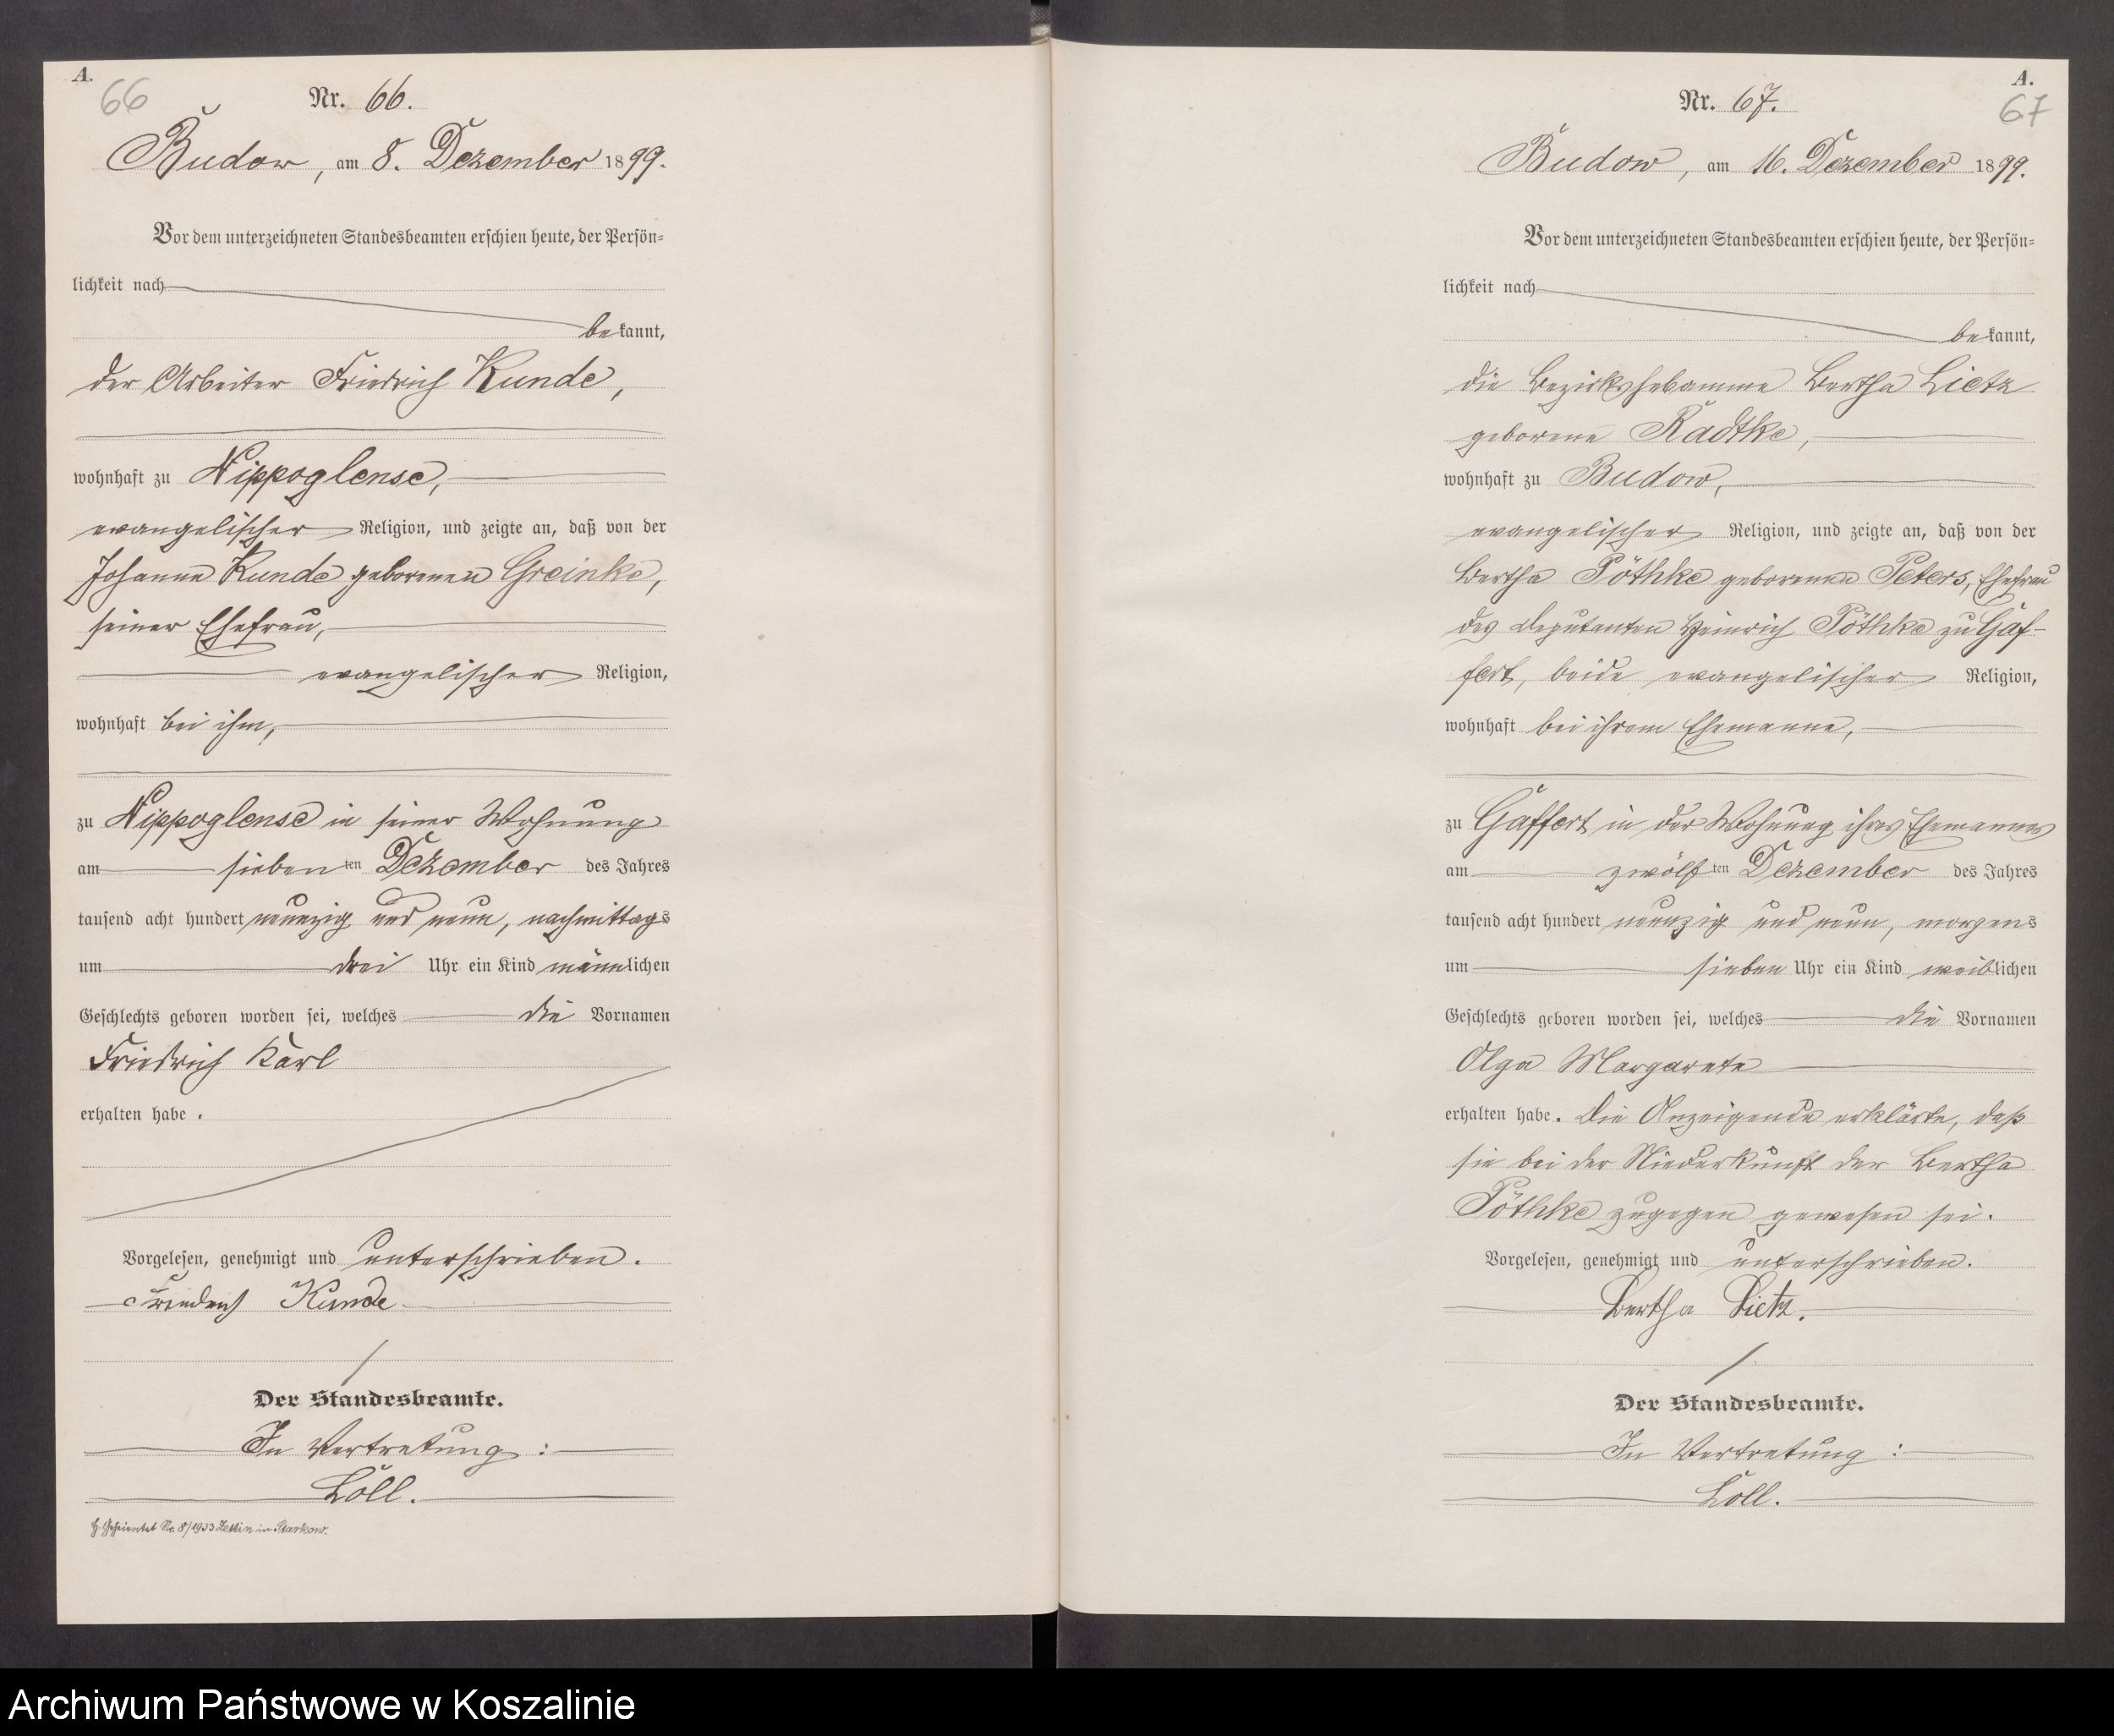 A.
66
Nr. 66.
Budow, am 8. Dezember 1899.
Vor dem unterzeichneten Standesbeamten erschien heute, der Persön-
lichkeit nach
bekannt,
der Arbeiter Friedrich Kunde,
wohnhaft zu Nippoglense,
evangelischer Religion, und zeigte an, daß von der
Johanne Kunde geborenen Greinke,
seiner Ehefrau,
evangelischer Religion,
wohnhaft bei ihm,
zu Nippoglense in seiner Wohnung
am siebenten Dezember des Jahres
tausend acht hundert neunzig und neun, nachmittags
um drei Uhr ein Kind männlichen
Geschlechts geboren worden sei, welches die Vornamen
Friedrich Karl
erhalten habe.
Vorgelesen, genehmigt und unterschrieben.
Friedrich Kunde
Der Standesbeamte.
In Vertretung:
Löll.
Nr. 8/1933 in Starkow.
A.
67
Nr. 67.
Budow, am 16. Dezember 1899.
Vor dem unterzeichneten Standesbeamten erschien heute, der Persön-
lichkeit nach
bekannt,
die Bezirkshebamme Bertha Lietz
geborene Radtke,
wohnhaft zu Budow,
evangelischer Religion, und zeigte an, daß von der
Bertha Pöthke geborenen Peters, Ehefrau
des Deputanten Heinrich Pöthke zu Gaf-
fert, beide evangelischer Religion,
wohnhaft bei ihrem Ehemanne,
zu Gaffert in der Wohnung ihres Ehemannes
am zwölften Dezember des Jahres
tausend acht hundert neunzig und neun, morgens
um sieben Uhr ein Kind weiblichen
Geschlechts geboren worden sei, welches die Vornamen
Olga Margarete
erhalten habe. Die Anzeigende erklärte, daß
sie bei der Niederkunft der Bertha
Pöthke zugegen gewesen sei.
Vorgelesen, genehmigt und unterschrieben.
Bertha Lietz.
Der Standesbeamte.
In Vertretung:
Löll.
Archiwum Państwowe w Koszalinie